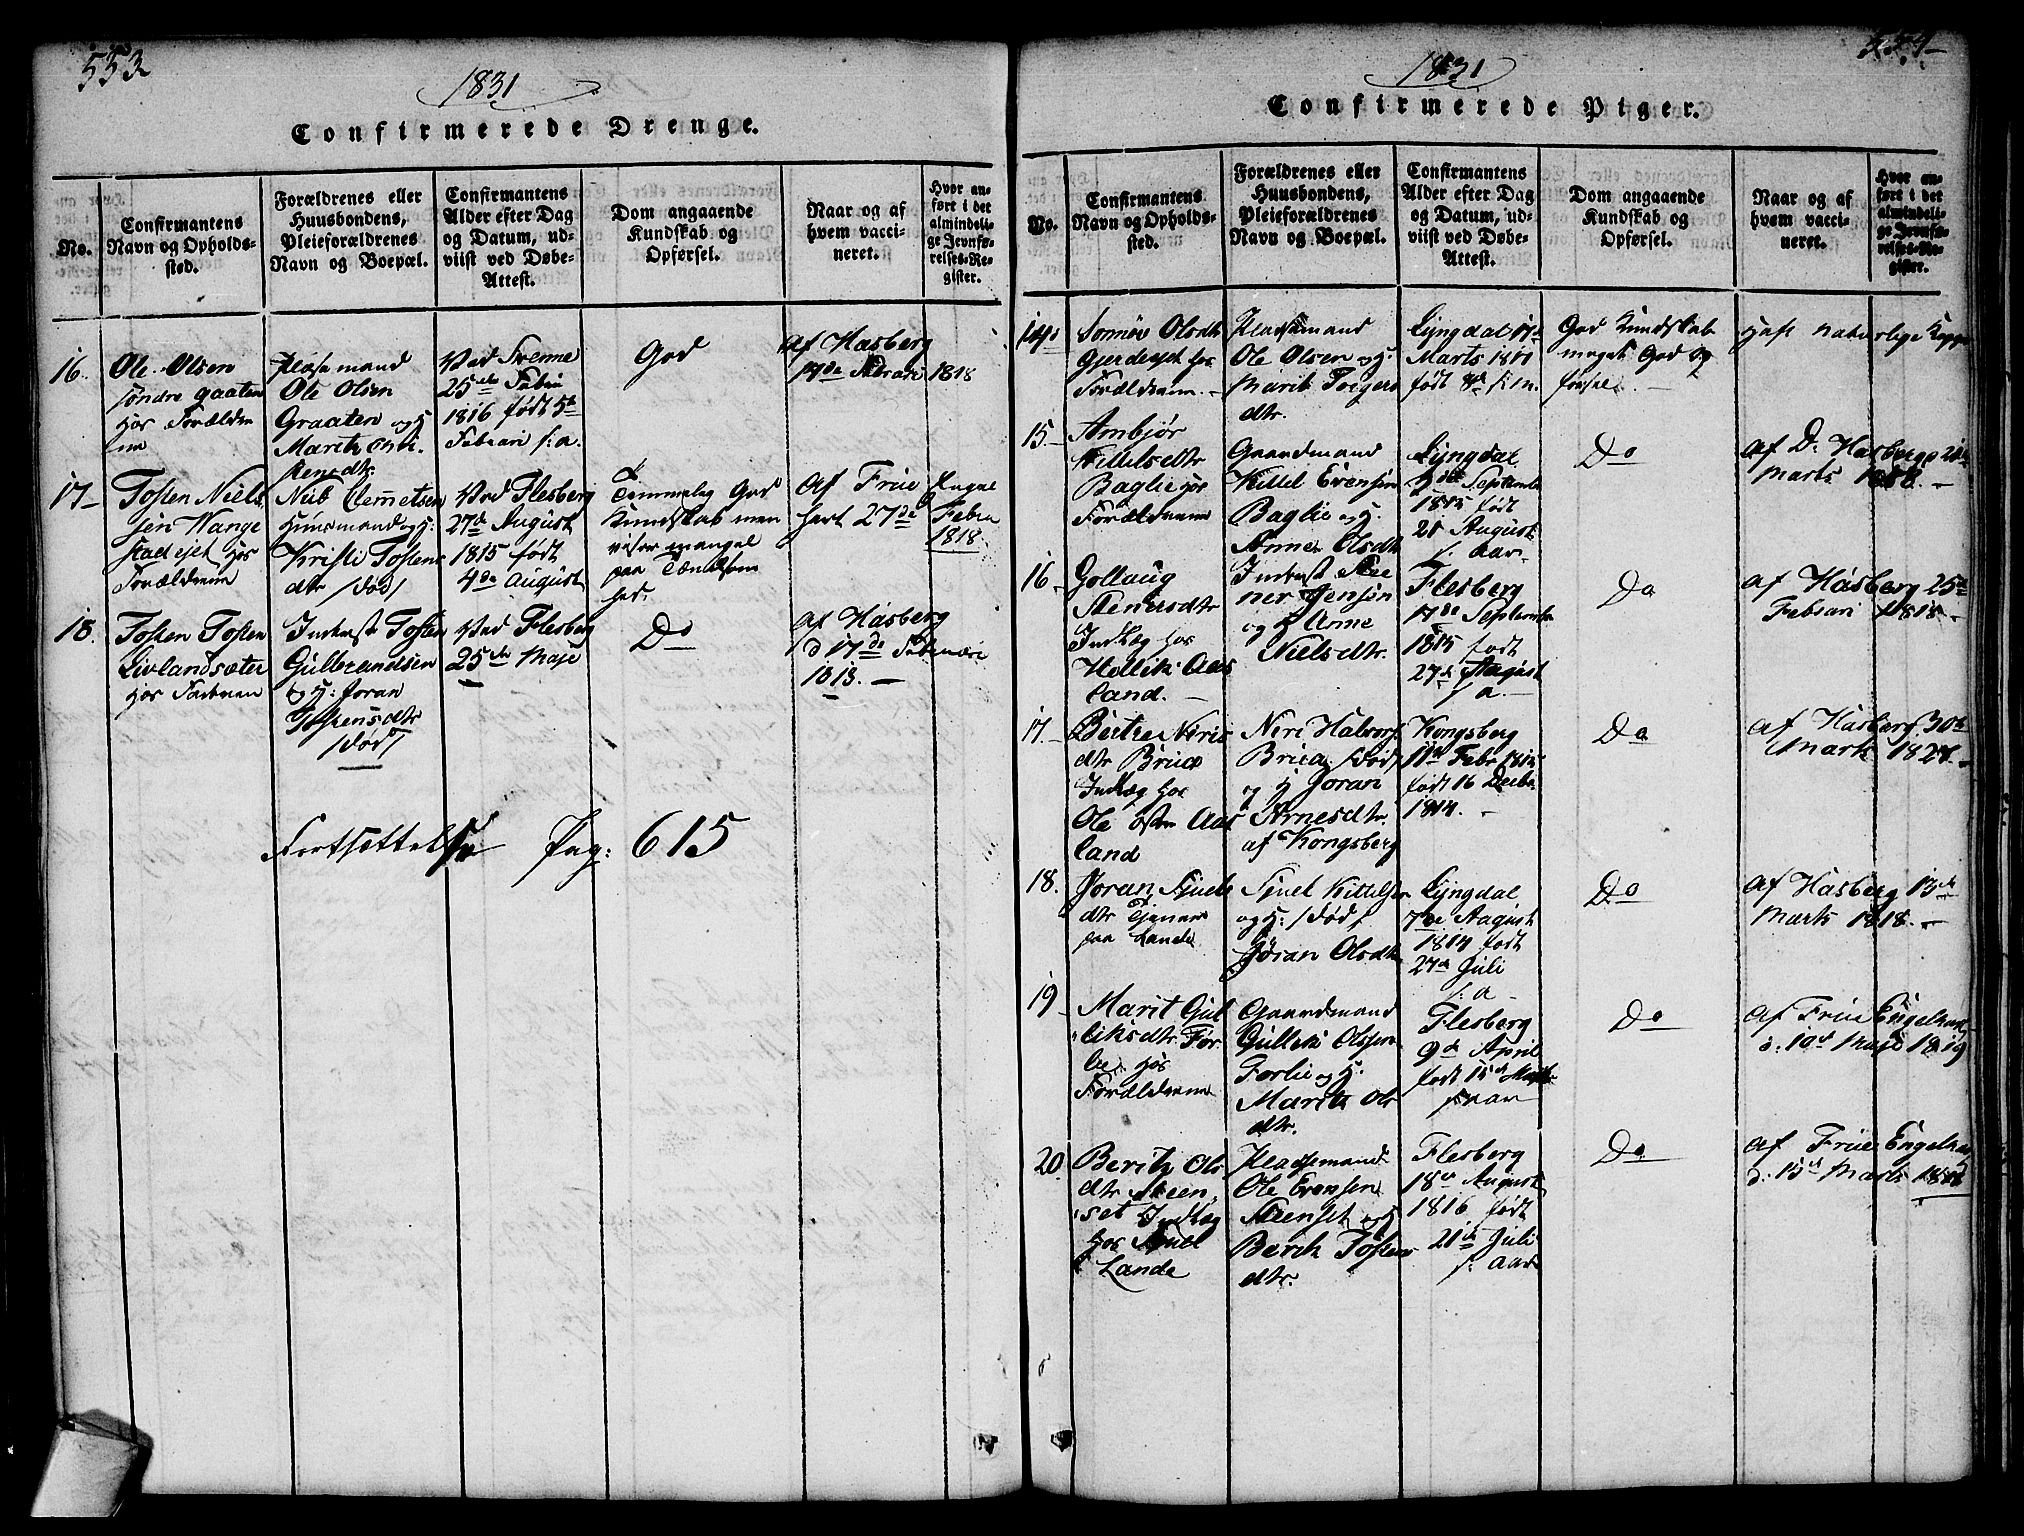 553
1831
Confirmerede Drenge.
No.
Confirmantens
Navn og Opholds-
sted.
Forældrenes eller
Huusbondens,
Pleieforældrenes
Navn og Boepæl.
Confirmantens
Alder efter Dag
og Datum, ud-
viist ved Døbe-
Attest.
Dom angaaende
Kundskab og
Opførsel.
Naar og af
hvem vacci-
neret.
Hvor an-
ført i det
almindeli-
ge Jevnfø-
relses-Re-
gister.
16.
Ole Olsen
søndre Graaten
hos Forældre
ne
Pladsmand
Ole Olsen
Graaten og H
Marith Chri
stensdtr
Ved Svenne
25de Febru
1816 født 5te
Februari s: a.
God
Af Hasberg
17de Februari 1818
17
Tosten Niels
sen Wange
stadejet hos
Forældrene
Niels Clemetsen
Huusmand og H:
Kristi Tostens
dtr /død/
Ved Flesberg
27de August
1815 født
4de August
Temmelig God
Kundskab men
viser mangel
paa Tænksom
hed.
Af Frue Engel
hart 27de Febru
1818
18.
Tosten Tosten
Livlandsæter
hos Faderen
Inderst Tosten
Gulbrandsen
og H: Joran
Tostensdtr
/død/
Ved Flesberg
25de Maje
Do
Af Hasberg
d 17de Februari
1818. —
Fortsættelse Pag: 615
554
1831
Confirmerede Piger.
No.
Confirmantens
Navn og Opholds-
sted.
Forældrenes eller
Huusbondens,
Pleieforældrenes
Navn og Boepæl.
Confirmantens
Alder efter Dag
og Datum, ud-
viist ved Døbe-
Attest.
Dom angaaende
Kundskab og
Opførsel.
Naar og af
hvem vacci-
neret.
Hvor an-
ført i det
almindeli-
ge Jevnfø-
relses-Re-
gister.
14.
Olsdtr
Gjerdeejet hos
Forældrene. —
Pladsmand
Ole Olsen og H:
Marit Torgers
dtr.
Lyngdal 17de
Marts
født 8de s: m.
God Kundskab
meget God Op
førsel —
Haft Naturlige Kopper
15.
Ambjør
Kittelsdtr
Baglie hos
Forældrene
Gaardmand
Kittel Evensen
Baglie og H:
Anne Olsdtr
Lyngdal
September
1815 født
21 August
s: aar
Do
af D. Hasberg
Marts 1818. —
16
Gollaug
Stenersdtr
Indlæg hos
Hellik Aas
land. —
Inderst Ste
ner Jensen
og H Anne
Nielsdtr.
Flesberg
17de September
1815 født
27de August
s a. —
Do
af Hasberg 25de
Februari 1818 —
17.
Berthe Niris
dtr Briie
Indlæg hos
Ole østre Aas
land
Niri Halvors
Briie /død/
og H Joran
Arnesdtr.
af Kongsberg
Kongsberg
11te Febr 1815
født 16 Decbr
1814. —
Do
af Hasberg 30te
Marts —
18.
Joran Sjuels
dtr Tjener
paa Lande
Sjuel Kittelsen
og H: /død/
Jøran Olsdtr
Lyngdal
7de August
1814 født
27de Juli
s: a —
Do
af Hasberg 13de
Marts 1818. —
19
Marit Gul
liksdtr For
lie hos
Forældrene
Gaardmand
Gullik Olssen
Forlie og H:
Marith Ols
dtr.
Flesberg
9de April
født 15de Marts
s aar
Do
af Frue Engelhart
d: 10de Maje 1819
20
Berith Ols
dtr Steen
set Indlæg
hos Sjuel
Lande
Pladsmand
Ole Evensen
Steenset og H
Berith Tostens
dtr.
Flesberg
18de August
1816 født
21de Juli
s: aar
Do
af Frue Engelhart
d: 15de Marts